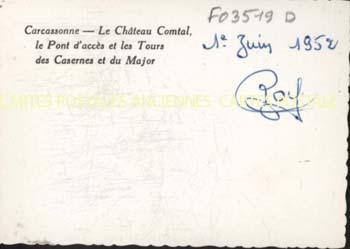 F03519 D
Carcassonne — Le Château Comtal,
le Pont d'accès et les Tours
des Casernes et du Major
1e Juin 1952
CARTES POSTALES ANCIENNES